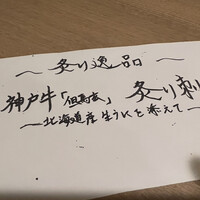 ～炙り逸品～
神戸牛「但馬玄」 炙り刺
―北海道産生うにを添えて―